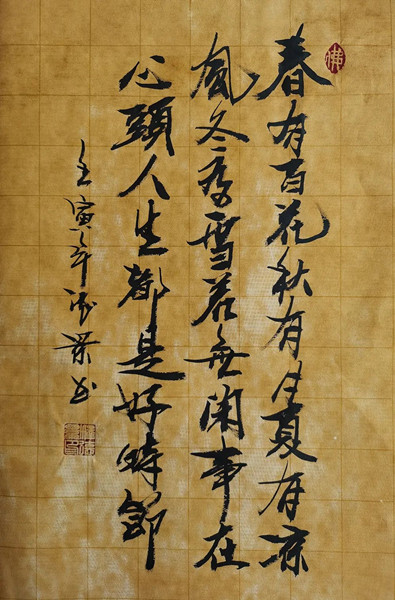 春有百花秋有月夏有凉
風冬有雪若無閑事在
心頭人生都是好時節
壬寅年
佛